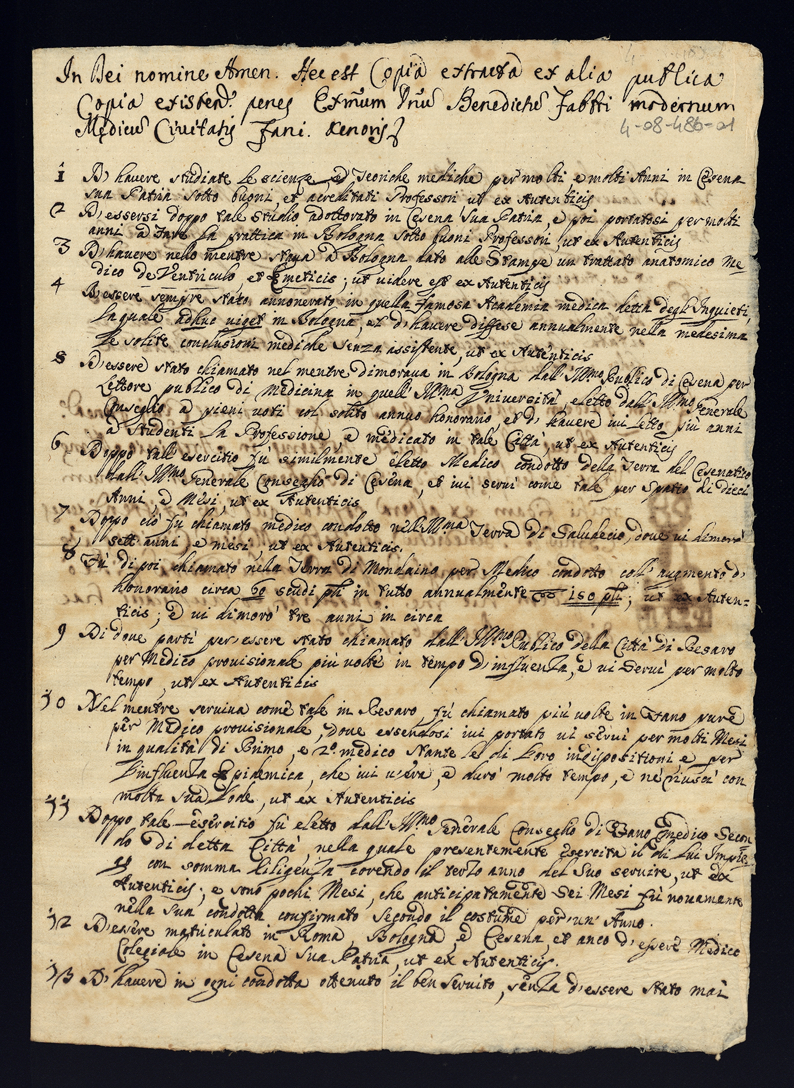 In Dei nomine Amen. Hec est Copia extracta ex alia publica
Copia existen. penes Exmum Dnum Benedictu Fabbri modernum
Medicu Civitatis Fani. tenoris
4-08-486-01
1 D'havere studiate le scienze, e Teoriche mediche per molti e molti Anni in Cesena
sua Patria sotto buoni, et acreditati Professori ut ex Autenticis
2 D'essersi doppo tale studio adottorato in Cesena sua Patria, e poi portatosi per molti
anni a fare la prattica in Bologna sotto buoni Professori, ut ex Autenticis
3 D'havere nello mentre stava a Bologna dato alle Stampe un trattato anatomico Me
dico de Ventriculo, et Emeticis; ut videre est ex Autenticis
4 D'essere sempre stato annonerato in quella famosa Academia medica detta degl'Inquieti,
la quale adhuc viget in Bologna, et d'havere diffese annualmente nella medesima
le solite conclusioni mediche senza assistente, ut ex Autenticis
5 D'essere stato chiamato nel mentre dimorava in Bologna dall'Illmo Publico di Cesena per
Lettore publico di Medicina in quell'Alma Università eletto dall'Illmo Generale
Conseglio a pieni voti col solito annuo honorario et d'havere ivi letto più anni
a Studenti la Professione, e medicato in tale Città, ut ex Autenticis
6 Doppo tall'esercitio fù similmente eletto Medico condotto della Terra del Cesenatico
dall'Illmo Generale Conseglio di Cesena, et ivi servì come tale per spatio di dieci
Anni, e Mesi, ut ex Autenticis
7 Doppo ciò fù chiamato medico condotto nell'Illma Terra di Saludecio, dove vi dimorò
sett'anni e mesi ut ex Autenticis.
8 Fù di poi chiamato nella Terra di Mondaino per Medico condotto coll'augmento d'
honorario circa 60 scudi pli in tutto annualmente 150 pli; ut ex Auten=
ticis; e vi dimorò tre anni in circa
9 Di dove partì per essere stato chiamato dall'Illmo Publico della Città di Pesaro
per Medico provisionale più volte in tempo d'influenza, e vi servì per molto
tempo, ut ex Autenticis
10 Nel mentre serviva come tale in Pesaro fù chiamato più volte in Fano pure
per Medico provisionale, dove essendosi ivi portato vi servì per molti Mesi
in qualità di Primo, e 2º medico stante le di loro indispositioni e per
l'influenza Epidemica, che ivi v'era, e durò molto tempo, e ne riuscì con
molta sua lode, ut ex Autenticis
11 Doppo tale esercitio fù eletto dall'Illmo Generale Conseglio di Fano Medico Secon
do di detta Città nella quale presentemente esercita il di lui Impie
go con somma diligenza corendo il terzo anno del suo servire, ut ex
Autenticis; e sono pochi Mesi, che anticipatamente sei Mesi fù novamente
nella sua condotta confirmato secondo il costume per un'Anno.
12 D'essere matriculato in Roma, Bologna, e Cesena, et anco d'essere Medico
Colegiale in Cesena sua Patria, ut ex Autenticis.
13 D'havere in ogni condotta ottenuto il ben servito, senza d'essere stato mai